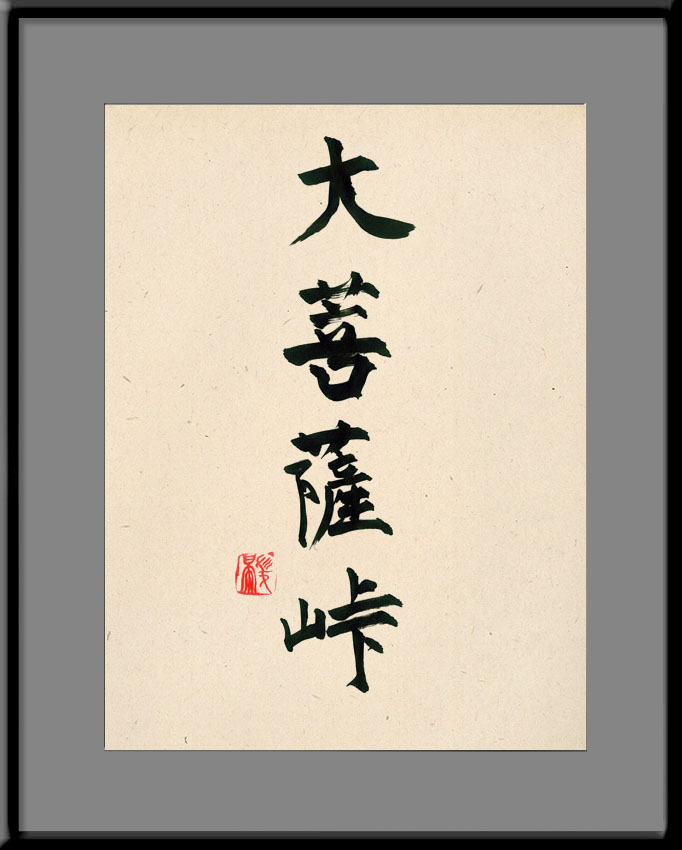 大菩薩峠